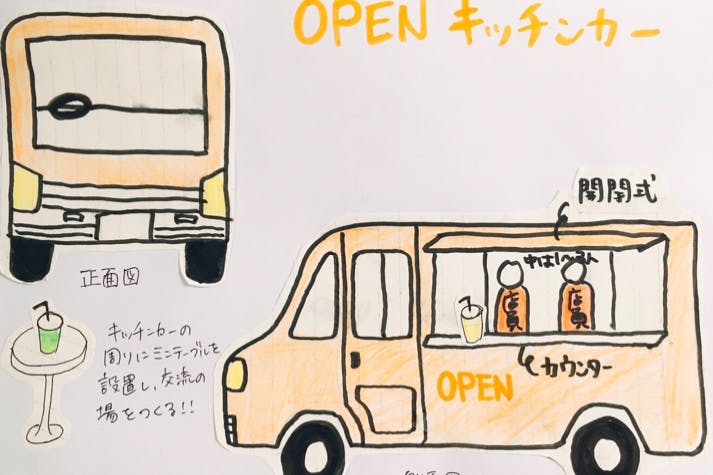 OPEN キッチンカー
開閉式
中は1〜3人
店員
店員
カウンター
OPEN
正面図
キッチンカーの
周りにミニテーブルを
設置し、交流の
場をつくる!!